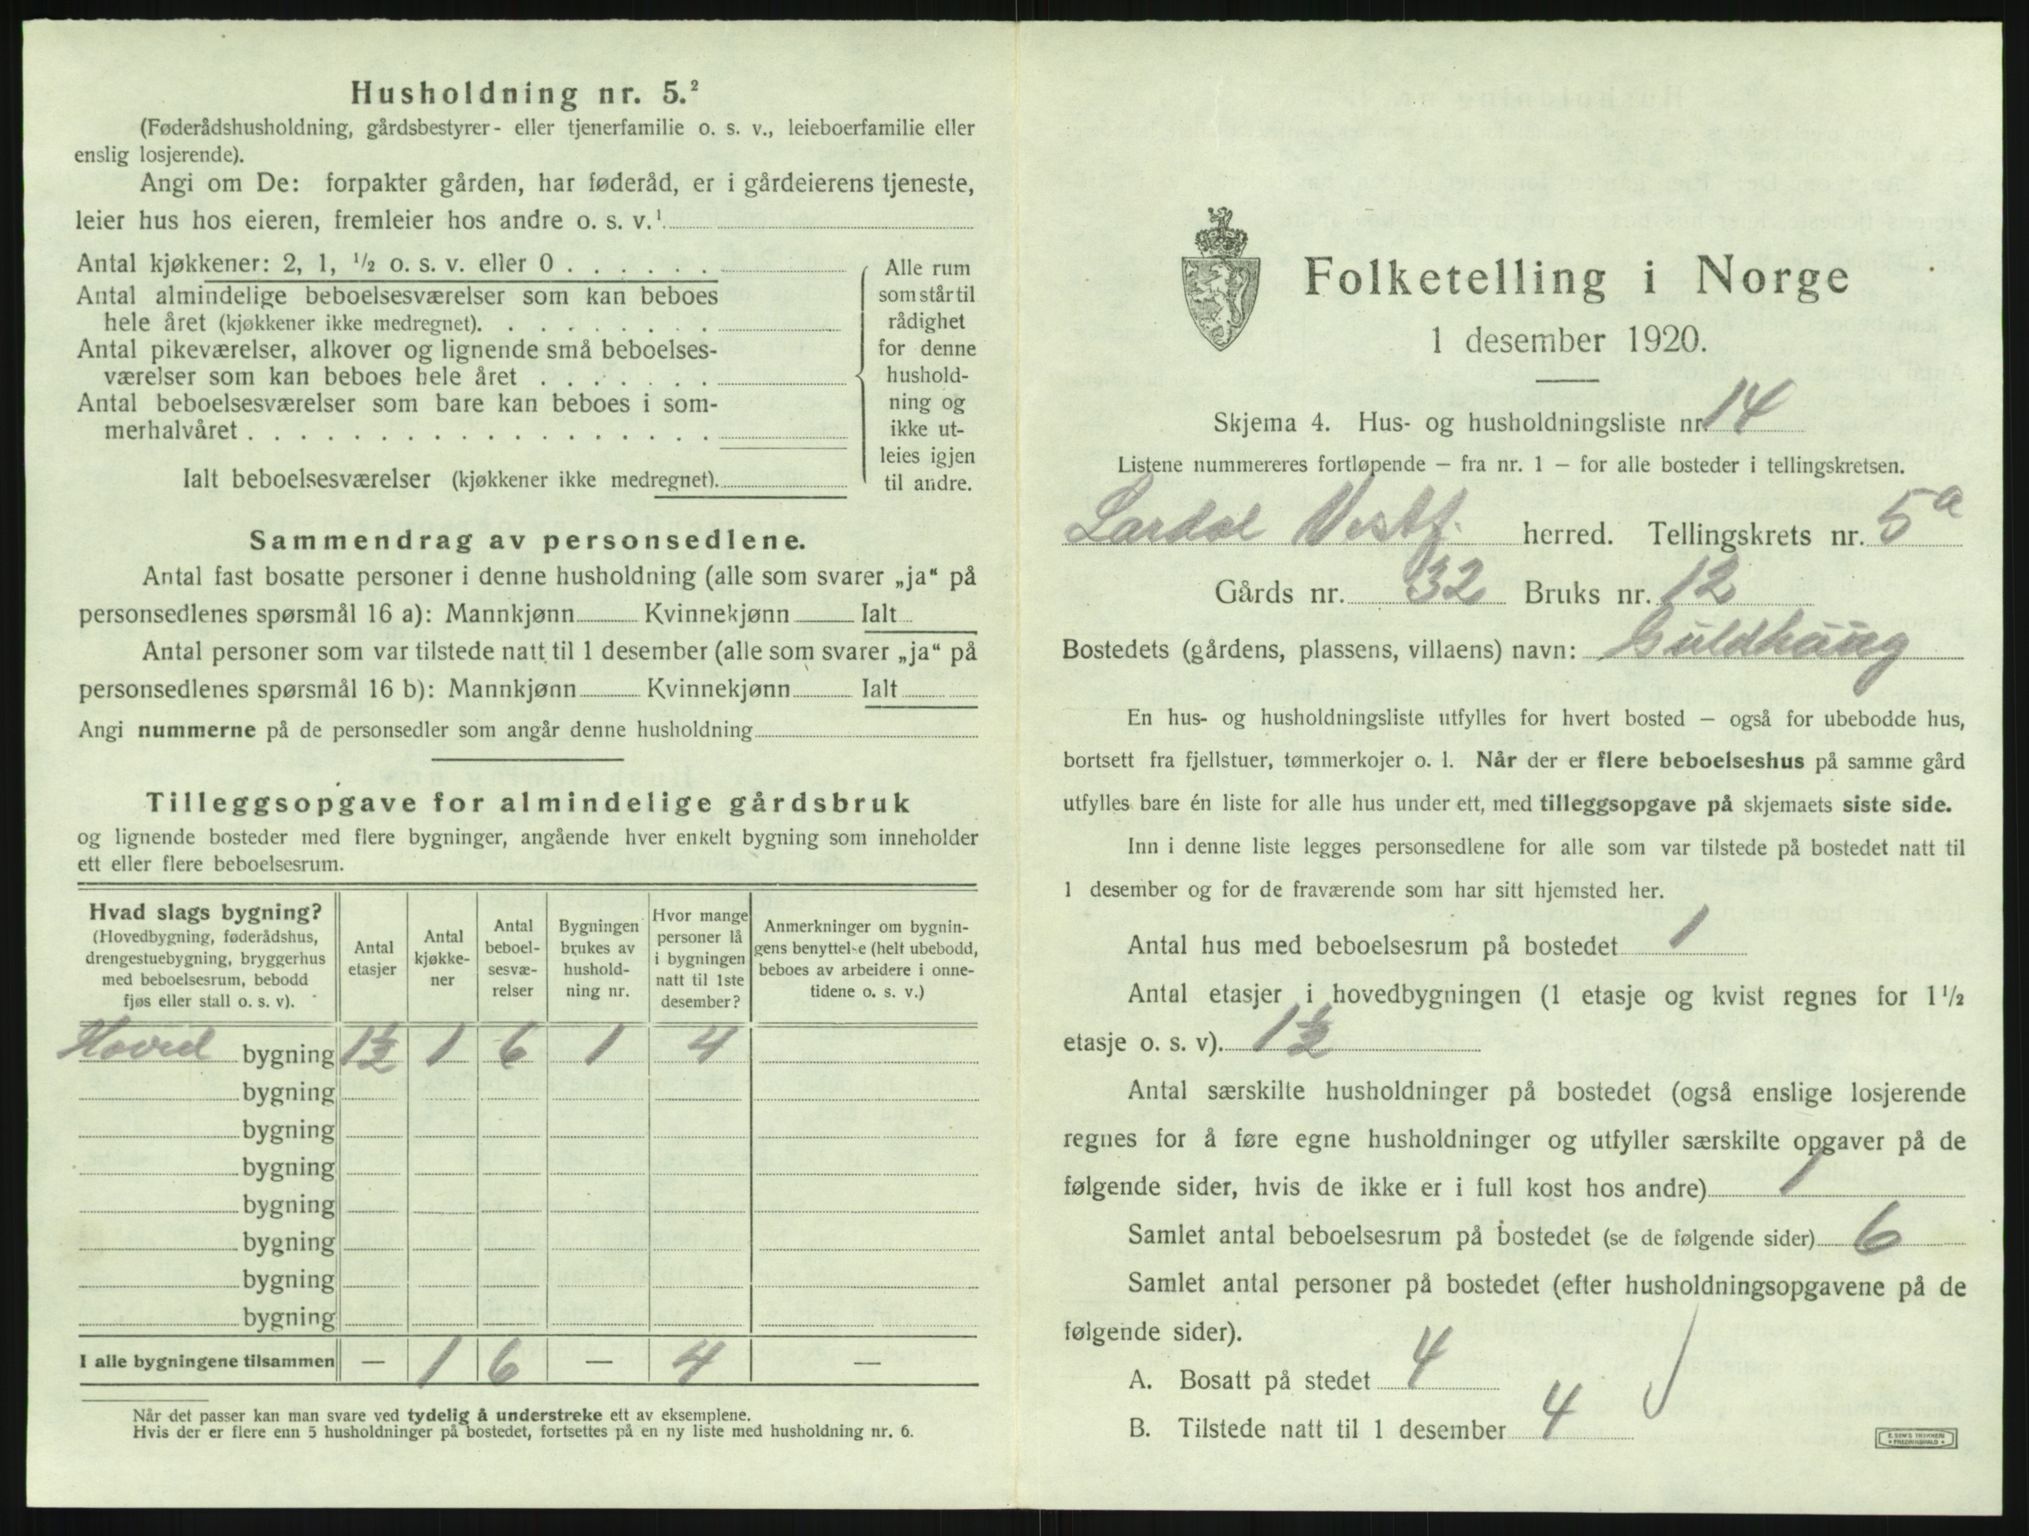 Husholdning nr. 5.²
(Føderådshusholdning, gårdsbestyrer- eller tjenerfamilie o. s. v., leieboerfamilie eller
enslig losjerende).
Angi om De: forpakter gården, har føderåd, er i gårdeierens tjeneste,
leier hus hos eieren, fremleier hos andre o. s. v.¹
Antal kjøkkener: 2, 1, ½ o. s. v. eller 0 . . . . . .
Antal almindelige beboelsesværelser som kan beboes
hele året (kjøkkener ikke medregnet). . . . . . . . .
Antal pikeværelser, alkover og lignende små beboelses-
værelser som kan beboes hele året . . . . . . .
Antal beboelsesværelser som bare kan beboes i som-
merhalvåret . . . . . . . . . . . . . . . . . .
Ialt beboelsesværelser (kjøkkener ikke medregnet).
Alle rum
som står til
rådighet
for denne
hushold-
ning og
ikke ut-
leies igjen
til andre.
Sammendrag av personsedlene.
Antal fast bosatte personer i denne husholdning (alle som svarer „ja“ på
personsedlenes spørsmål 16 a): Mannkjønn Kvinnekjønn Ialt
Antal personer som var tilstede natt til 1 desember (alle som svarer „ja“ på
personsedlenes spørsmål 16 b): Mannkjønn Kvinnekjønn Ialt
Angi nummerne på de personsedler som angår denne husholdning
Tilleggsopgave for almindelige gårdsbruk
og lignende bosteder med flere bygninger, angående hver enkelt bygning som inneholder
ett eller flere beboelsesrum.
Hvad slags bygning?
(Hovedbygning, føderådshus,
drengestuebygning, bryggerhus
med beboelsesrum, bebodd
fjøs eller stall o. s. v).
Antal
etasjer
Antal
kjøkke-
ner
Antal
beboel-
sesvæ-
relser
Bygningen
brukes av
hushold-
ning nr.
Hvor mange
personer lå
i bygningen
natt til 1ste
desember?
Anmerkninger om bygnin-
gens benyttelse (helt ubebodd,
beboes av arbeidere i onne-
tidene o. s. v.)
Hoved bygning 1½ 1 6 1 4
bygning
bygning
bygning
bygning
bygning
bygning
bygning
I alle bygningene tilsammen — 1 6 — 4 —
Når det passer kan man svare ved tydelig å understreke ett av eksemplene.
Hvis der er flere enn 5 husholdninger på bostedet, fortsettes på en ny liste med husholdning nr. 6.
Folketelling i Norge
1 desember 1920.
Skjema 4. Hus- og husholdningsliste nr. 14
Listene nummereres fortløpende – fra nr. 1 – for alle bosteder i tellingskretsen.
Lardal Vestf. herred. Tellingskrets nr. 5a
Gårds nr. 32 Bruks nr. 12
Bostedets (gårdens, plassens, villaens) navn: Guldhaug
En hus- og husholdningsliste utfylles for hvert bosted – også for ubebodde hus,
bortsett fra fjellstuer, tømmerkojer o. l. Når der er flere beboelseshus på samme gård
utfylles bare én liste for alle hus under ett, med tilleggsopgave på skjemaets siste side.
Inn i denne liste legges personsedlene for alle som var tilstede på bostedet natt til
1 desember og for de fraværende som har sitt hjemsted her.
Antal hus med beboelsesrum på bostedet 1
Antal etasjer i hovedbygningen (1 etasje og kvist regnes for 1½
etasje o. s. v). 1½
Antal særskilte husholdninger på bostedet (også enslige losjerende
regnes for å føre egne husholdninger og utfyller særskilte opgaver på de
følgende sider, hvis de ikke er i full kost hos andre) 1
Samlet antal beboelsesrum på bostedet (se de følgende sider) 6
Samlet antal personer på bostedet (efter husholdningsopgavene på de
følgende sider).
A. Bosatt på stedet 4
B. Tilstede natt til 1 desember 4